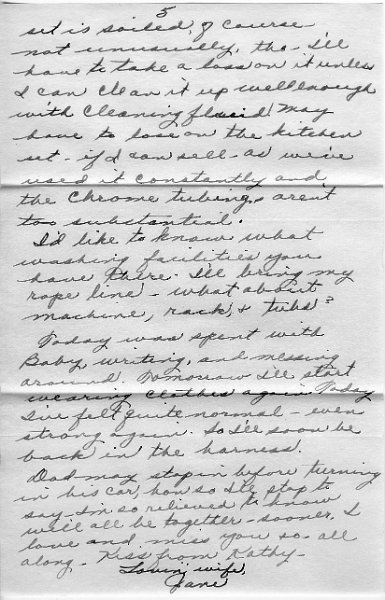 5
set is soiled, of course
not unusually, tho - I'll
have to take a loss on it unless
I can clean it up well enough
with cleaning fluid! May
have to lose on the kitchen
set - if I can sell - as we've
used it constantly and
the chrome tubings aren't
too substantial.
I'd like to know what
washing facilities you
have there. I'll bring my
rope line - what about
machine, rack, & tubs?
Today was spent with
Baby, writing, and messing
around. Tomorrow I'll start
wearing clothes again. Today
I've felt quite normal - even
strong again. So I'll soon be
back in the harness.
Dad may stop in before turning
in his car, hon so I'll stop to
say - I'm so relieved to know
we'll all be together - sooner. I
love and miss you so - all
along. Kiss from Kathy -
Lovin' wife,
Jane